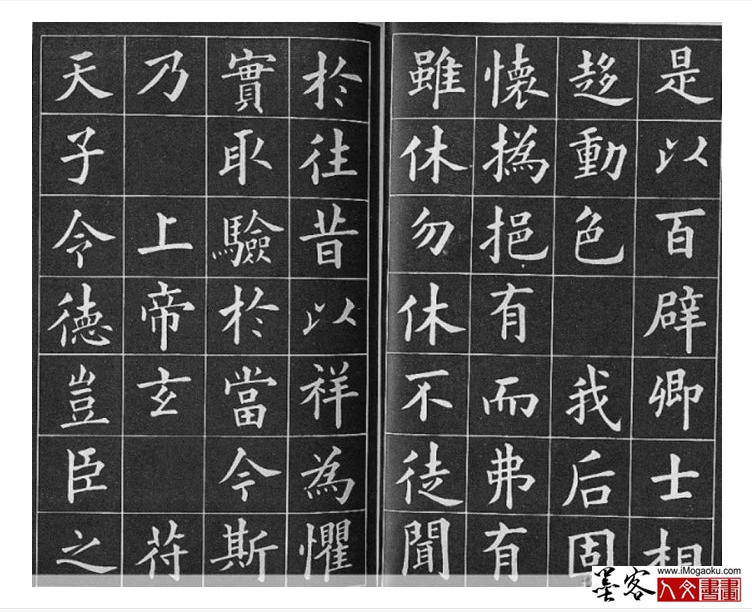 是以百辟卿士相
趍動色我后固
懷撝挹有而弗有
雖休勿休不徒聞
於往昔以祥為懼
實取驗於當今斯
乃上帝玄符
天子令德豈臣之
墨客
www.iMogaoku.com
人文書畫